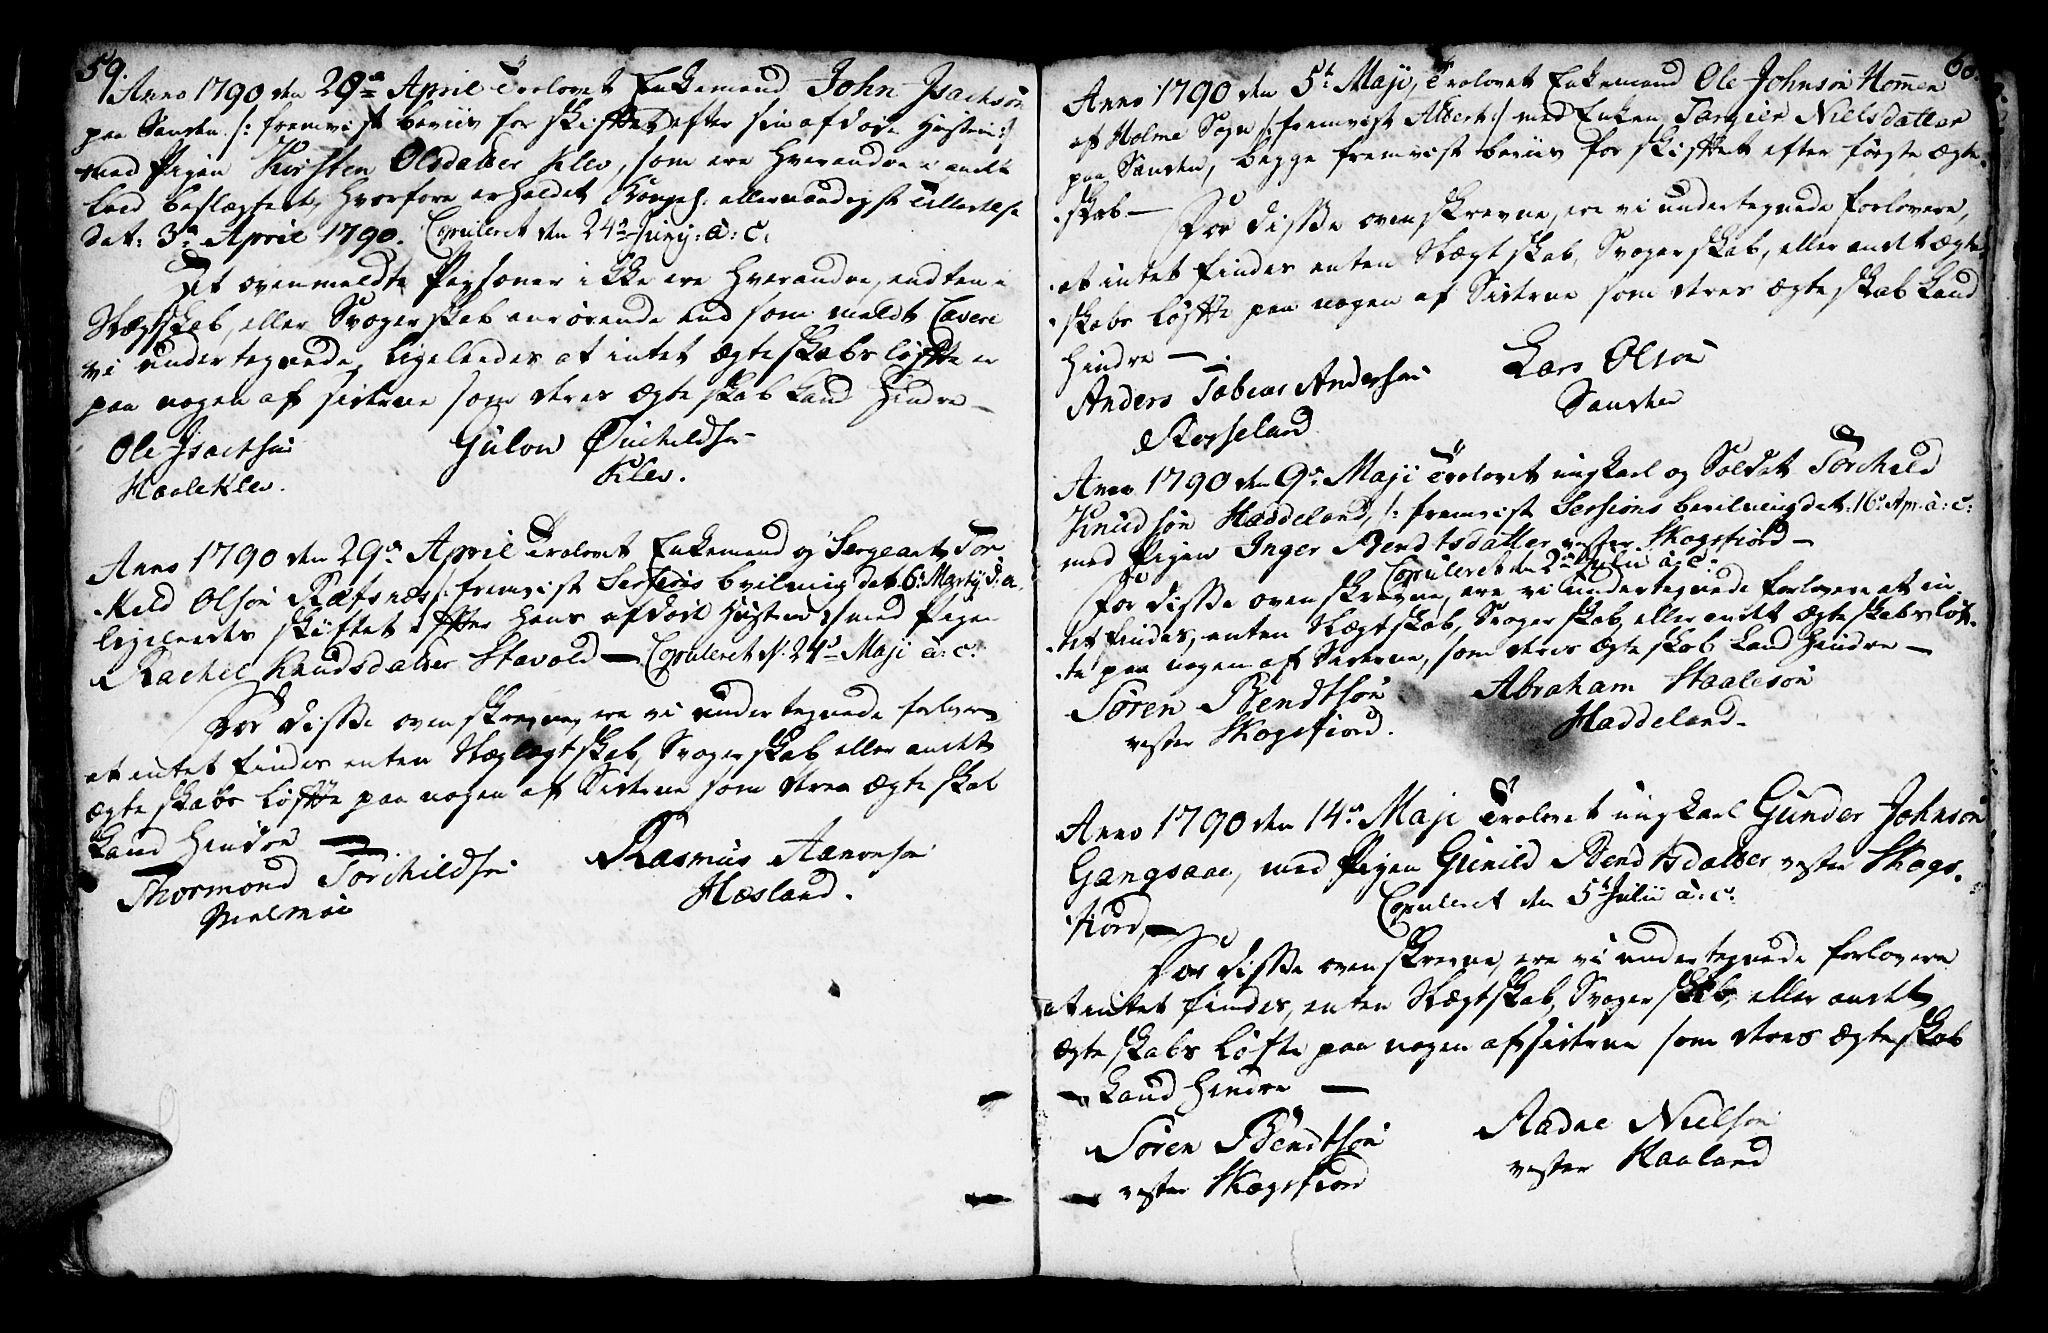 59.
Anno 1790 den 29de April Trolovet Enkemand John Isachsøn
paa Sanden /: fremvist beviis for skiftet efter sin afdøde Hustru :/
med Pigen Kirsten Olsdatter Klev, som ere hverandre i andet
leed beslægtet, hvorfore erholdet Kongel: allernaadigst Tilladelse
dat: 3de April 1790. Copuleret den 24de Junij: a: c:
At ovenmeldte Persohner ikke ere hverandre, endten i
Slægtskab, eller Svogerskab anrørende end som meldt Cavere
vi undertegnede, ligeleedes at intet ægteskabs løfte er
paa nogen af siderne som deres ægteskab kand hindre —
Ole Isachsøn
Haaleklev.
Gulov Torkildsøn
Klev.
Anno 1790 den 29de April Trolovet Enkemand og Sergeant Tor-
kild Olsøn Refsnes /: fremvist Sessions bevilning dat: 6te Martij d: a:
ligeleedes skiftet efter hans afdøde Hustru :/ med Pigen
Rachel Knudsdatter Stavold — Copuleret d: 24de Maji a: c:
For disse ovenskrevne, ere vi undertegnede forlovere
at intet findes enten Slægtskab, Svogerskab eller andet
ægteskabs løfte paa nogen af Siderne som deres ægteskab
kand hindre —
Thormond Torchildsøn
Melmøe
Rasmus Aanonsøn
Hæsland.
60.
Anno 1790 den 5te Maji, Trolovet Enkemand Ole Johnsøn Homen
af Holme Sogn /: fremvist Attest :/ med Enken Targier Nielsdatter
paa Sanden, begge fremvist beviis for skiftet efter første ægte-
skab —
For disse ovenskrevne, ere vi undertegnede forlovere,
at intet findes enten Slægtskab, Svogerskab, eller andet ægte-
skabs løfte paa nogen af Siderne som deres ægteskab kand
hindre —
Anders Tobias Andersen
Rosseland
Lars Olsøn
Sanden
Anno 1790 den 9de Maji Trolovet ungkarl og Soldat Torchild
Knudsøn Haddeland, /: fremvist Sessions bevilning dat: 16: Apr: a: c:
med Pigen Inger Bendtsdatter vester Skogsfiord —
Copuleret den 2de Julii a: c:
For disse ovenskrevne, ere vi undertegnede forlovere at in-
tet findes, enten Slægtskab, Svogerskab, eller andet ægteskabs løf-
te paa nogen af Siderne, som deres ægteskab kand hindre —
Søren Bendtsøn
vester Skogsfiord.
Abraham Staalesøn
Haddeland.
Anno 1790 den 14de Maji Trolovet ungkarl Gunder Johnsøn
Gangsaae, med Pigen Gunild Bendtsdatter vester Skogs-
fiord, —
Copuleret den 5te Julii a: c:
For disse ovenskrevne, ere vi undertegnede forlovere
at intet findes, enten Slægtskab, Svogerskab, eller andet
ægteskabs løfte paa nogen af siderne som deres ægteskab
kand hindre —
Søren Bendtsøn
vester Skogsfiord
Aadne Nielsøn
vester Kaaland